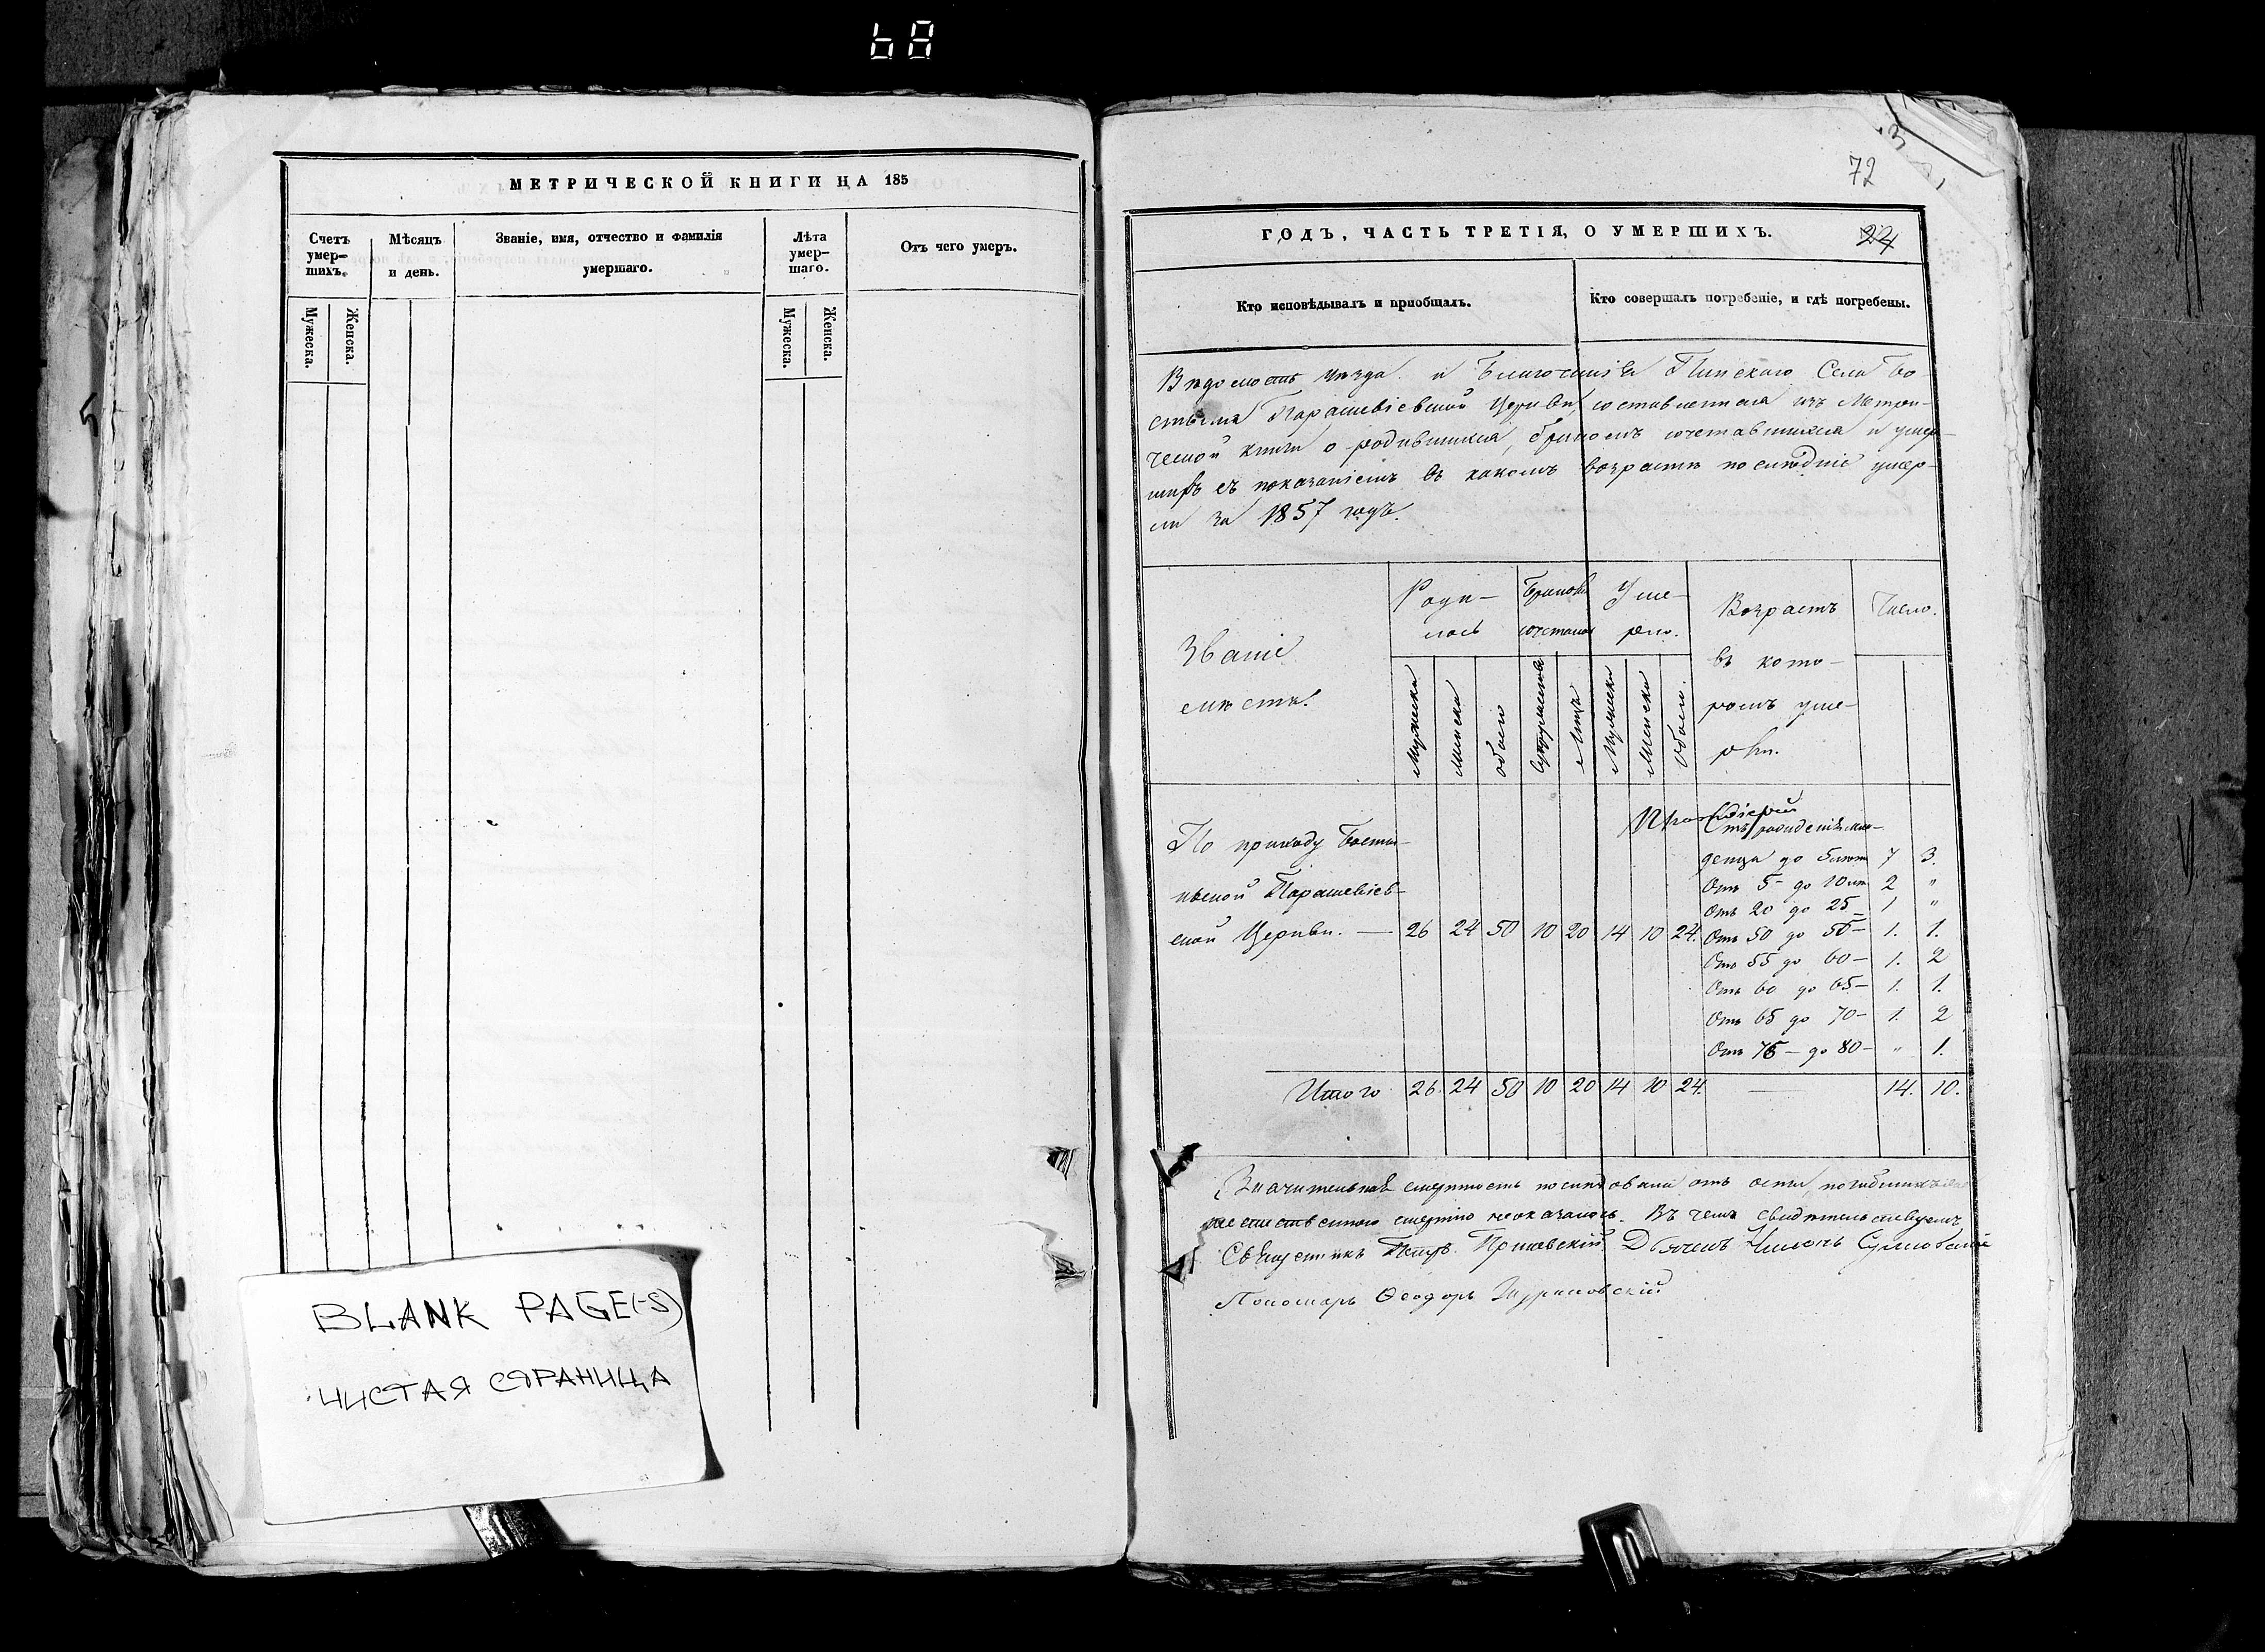 68
МЕТРИЧЕСКОЙ КНИГИ НА 185
Счетъ умер-шихъ.
Мѣсяцъ и день.
Званіе, имя, отчество и фамилія умершаго.
Лѣта умер-шаго.
Отъ чего умеръ.
Мужеска.
Женска.
Мужеска.
Женска.
BLANK PAGE(-S)
ЧИСТАЯ СТРАНИЦА
3
72
ГОДЪ, ЧАСТЬ ТРЕТІЯ, О УМЕРШИХЪ.
24
Кто исповѣдывалъ и пріобщалъ.
Кто совершалъ погребеніе, и гдѣ погребены.
Вѣдомость уѣзда и Благочинія Пинскаго Села Бо-
Парашевіевской Церкви, составленная изъ Метри-
ческой книги о родившихся, бракомъ сочетавшихся и умер-
шихъ съ показаніемъ въ какомъ возрастѣ послѣдніе умер-
ли за 1857 годъ.
Званіе мѣстъ.
Роди-лось
Браковъ
Уме-рло.
Возрастъ въ кото-ромъ уме-рли.
Число.
Мужеска
Женска
обоего
Супружества
Лицъ
Мужеска
Женска
Обоего.
По приходу
Парашевіев-
ской Церкви. — 26 24 50 10 20 14 10 24.
Отъ рожденія мла-
денца до 5 лѣтъ 7 3.
Отъ 5 - до 10 лѣтъ 2 "
Отъ 20 до 25 - 1 "
Отъ 50 до 55 - 1. 1.
Отъ 55 до 60 - 1. 2
Отъ 60 до 65 - 1. 1.
Отъ 65 до 70 - 1. 2
Отъ 75 - до 80 - " 1.
Итого 26. 24 50 10 20 14 10 24. — 14. 10.
Значительная смертность послѣдовала отъ оспы,
смертію неоказалось. Въ чемъ свидѣтельствуемъ
Священникъ Петръ Дьячекъ
Пономарь Ѳеодоръ